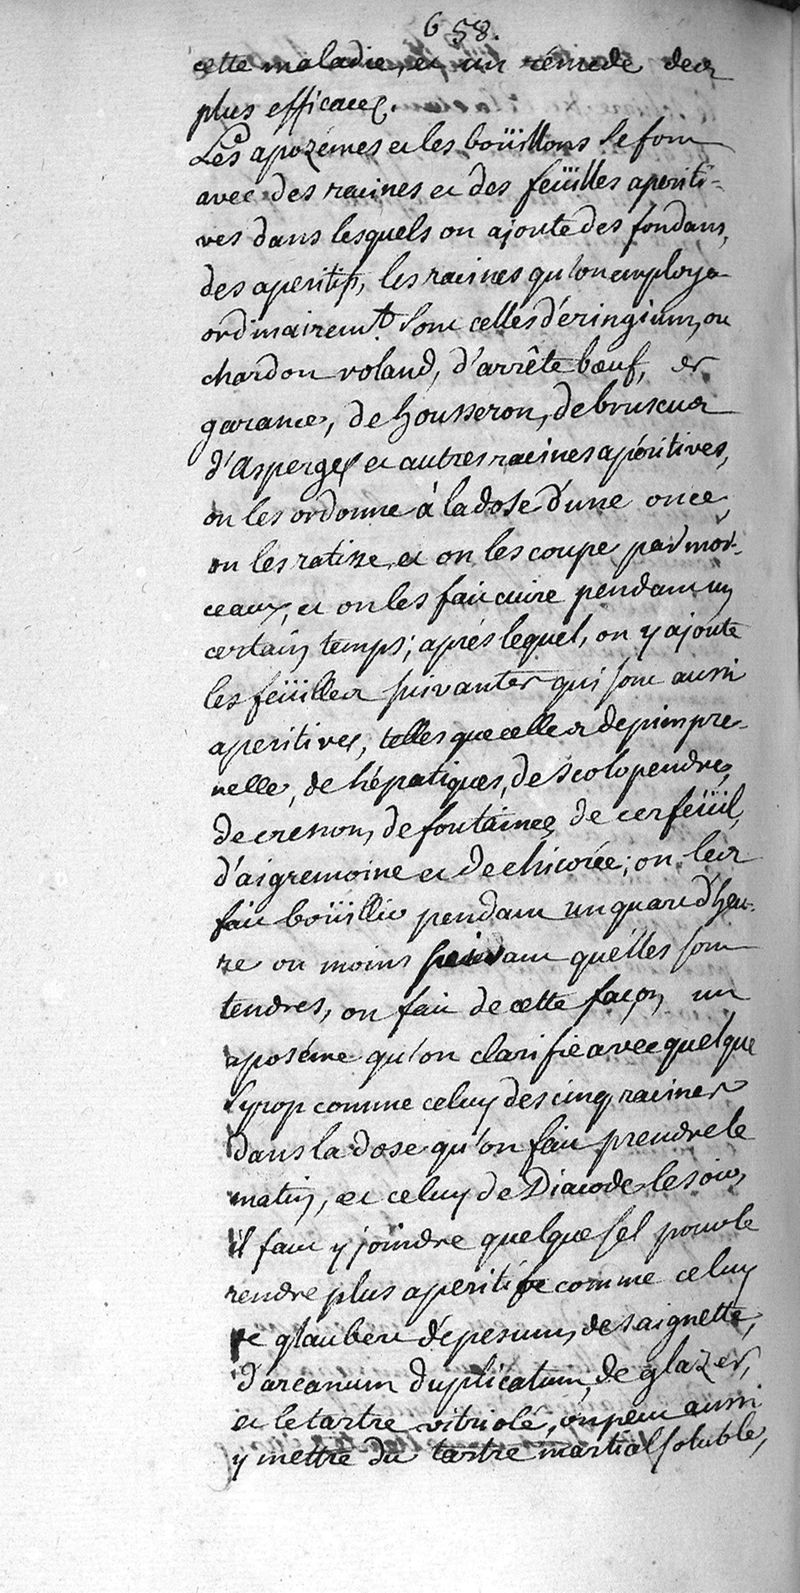 658.
cette maladie, et un rémede des
plus efficaces.
Les apozémes et les boüillons se font
avec des racines et des feüilles aperiti-
ves dans lesquels on ajoute des fondans,
des aperitifs, les racines qu'on employe
ordinairemt. sont celles d'éringium, ou
chardon roland, d'arrête bœuf, de
garance, de housseron, de bruscus
d'asperges et autres racines apéritives,
on les ordonne à la dose d'une once,
on les ratisse, et on les coupe par mor-
ceaux, et on les fait cuire pendant un
certain temps; aprés lequel, on y ajoute
les feüilles suivantes qui sont aussi
aperitives, telles que celles de pimpre-
nelle, de hépatiques, de scolopendre,
de cresson, de fontaines de cerfeüil,
d'aigremoine et de chicorée; on les
fait boüillir pendant un quart d'heu-
re ou moins suivant qu'elles sont
tendres, on fait de cette façon un
aposéme qu'on clarifie avec quelque
syrop comme celuy des cinq racines
dans la dose qu'on fait prendre le
matin, et celuy de Diacode le soir,
il faut y joindre quelque sel pour le
rendre plus aperitife comme celuy
de glauber d'epesum, de saignette,
d'arcanum duplicatum, de glazer,
et le tartre vitriolé, on peut aussi
y mettre du tartre martial soluble,